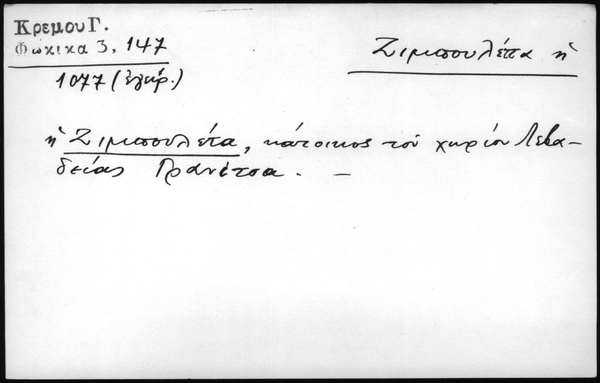 Κρεμου Γ.
Φωκικα 3, 147
1077 (ἐγκύρ.)
Ζιμπουλέτα ἡ
ἡ Ζιμπουλέτα, κάτοικος τοῦ χωρίου Λεβα-
δείας Γρανίτσα. –